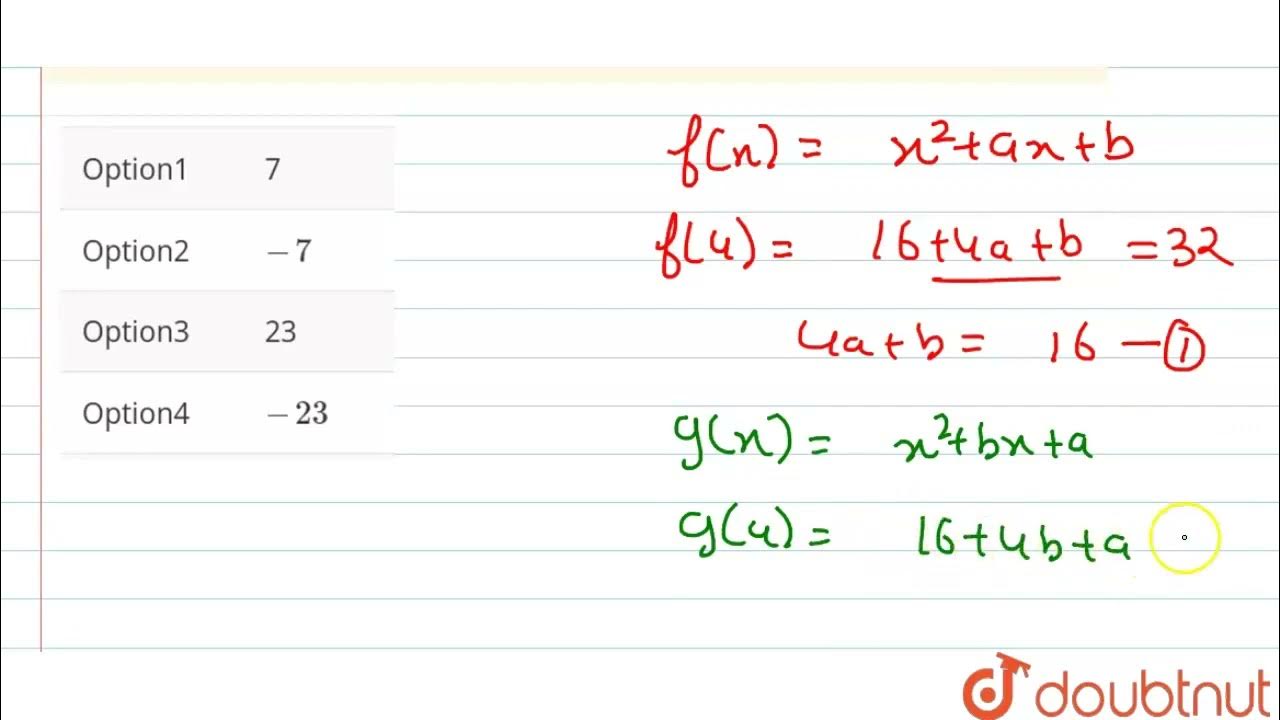 Option1 7
Option2 −7
Option3 23
Option4 −23
f(x) = x²+ax+b
f(4) = 16+4a+b = 32
4a+b = 16 — ①
g(x) = x²+bx+a
g(4) = 16+4b+a
doubtnut